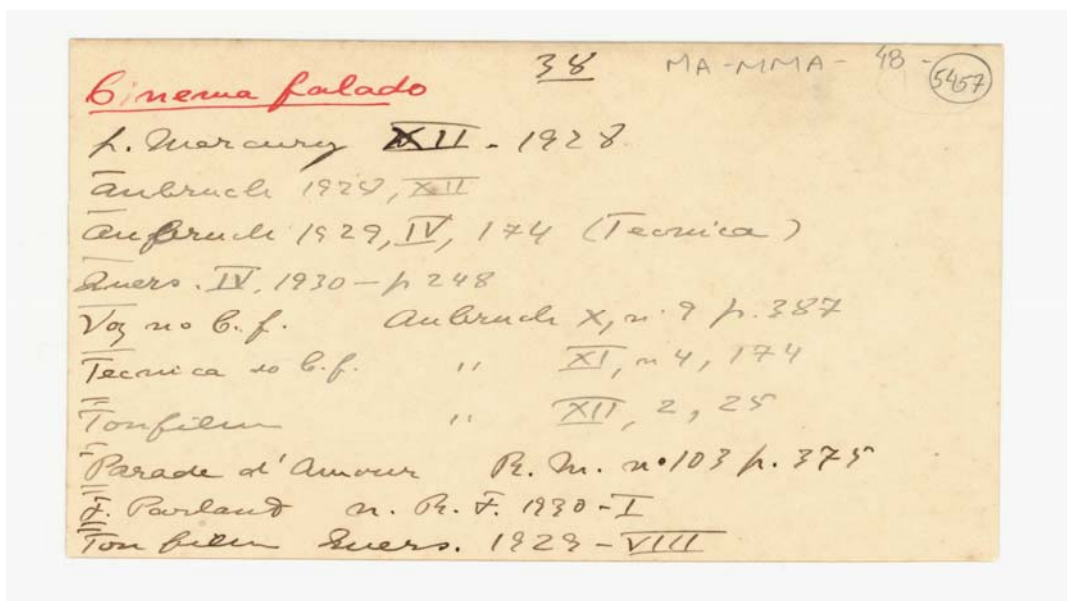 38 MA-MMA-48-5457
Cinema falado
L. Mercury XII - 1928
Anbruch 1928, XII
Anbruch 1929, IV, 174 (Tecnica)
Quers. IV, 1930 - p 248
Voz no C. f. Anbruch X, n. 9 p. 387
Tecnica do C. f. " XI, n 4, 174
Tonfilm " XII, 2, 25
Parade d'Amour R. M. nº 103 p. 375
F. Parland N. R. F. 1930 - I
Tonfilm Quers. 1929 - VIII